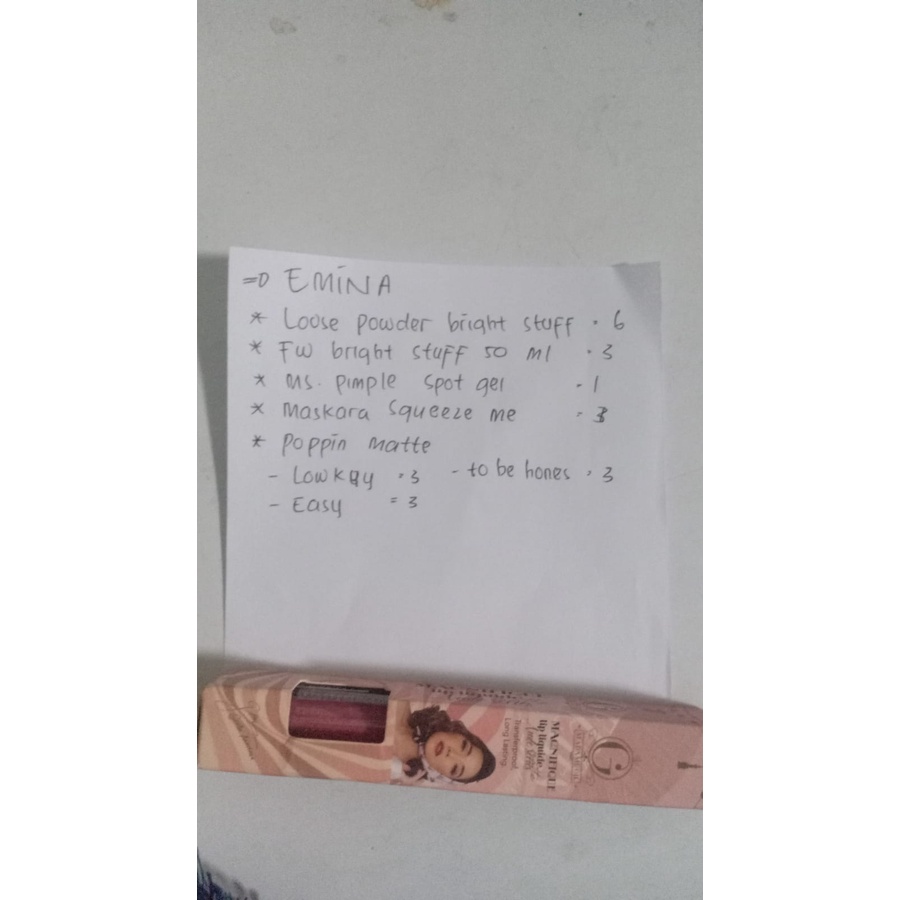 =D EMINA
* Loose powder bright stuff . 6
* FW bright stuff 50 ml . 3
* Ms. pimple spot gel - 1
* Maskara Squeeze me = 3
* Poppin matte
- Lowkey . 3 - to be hones . 3
- Easy = 3
MAGNIFIQUE
lip liquide
Transferproof
Long Lasting
G